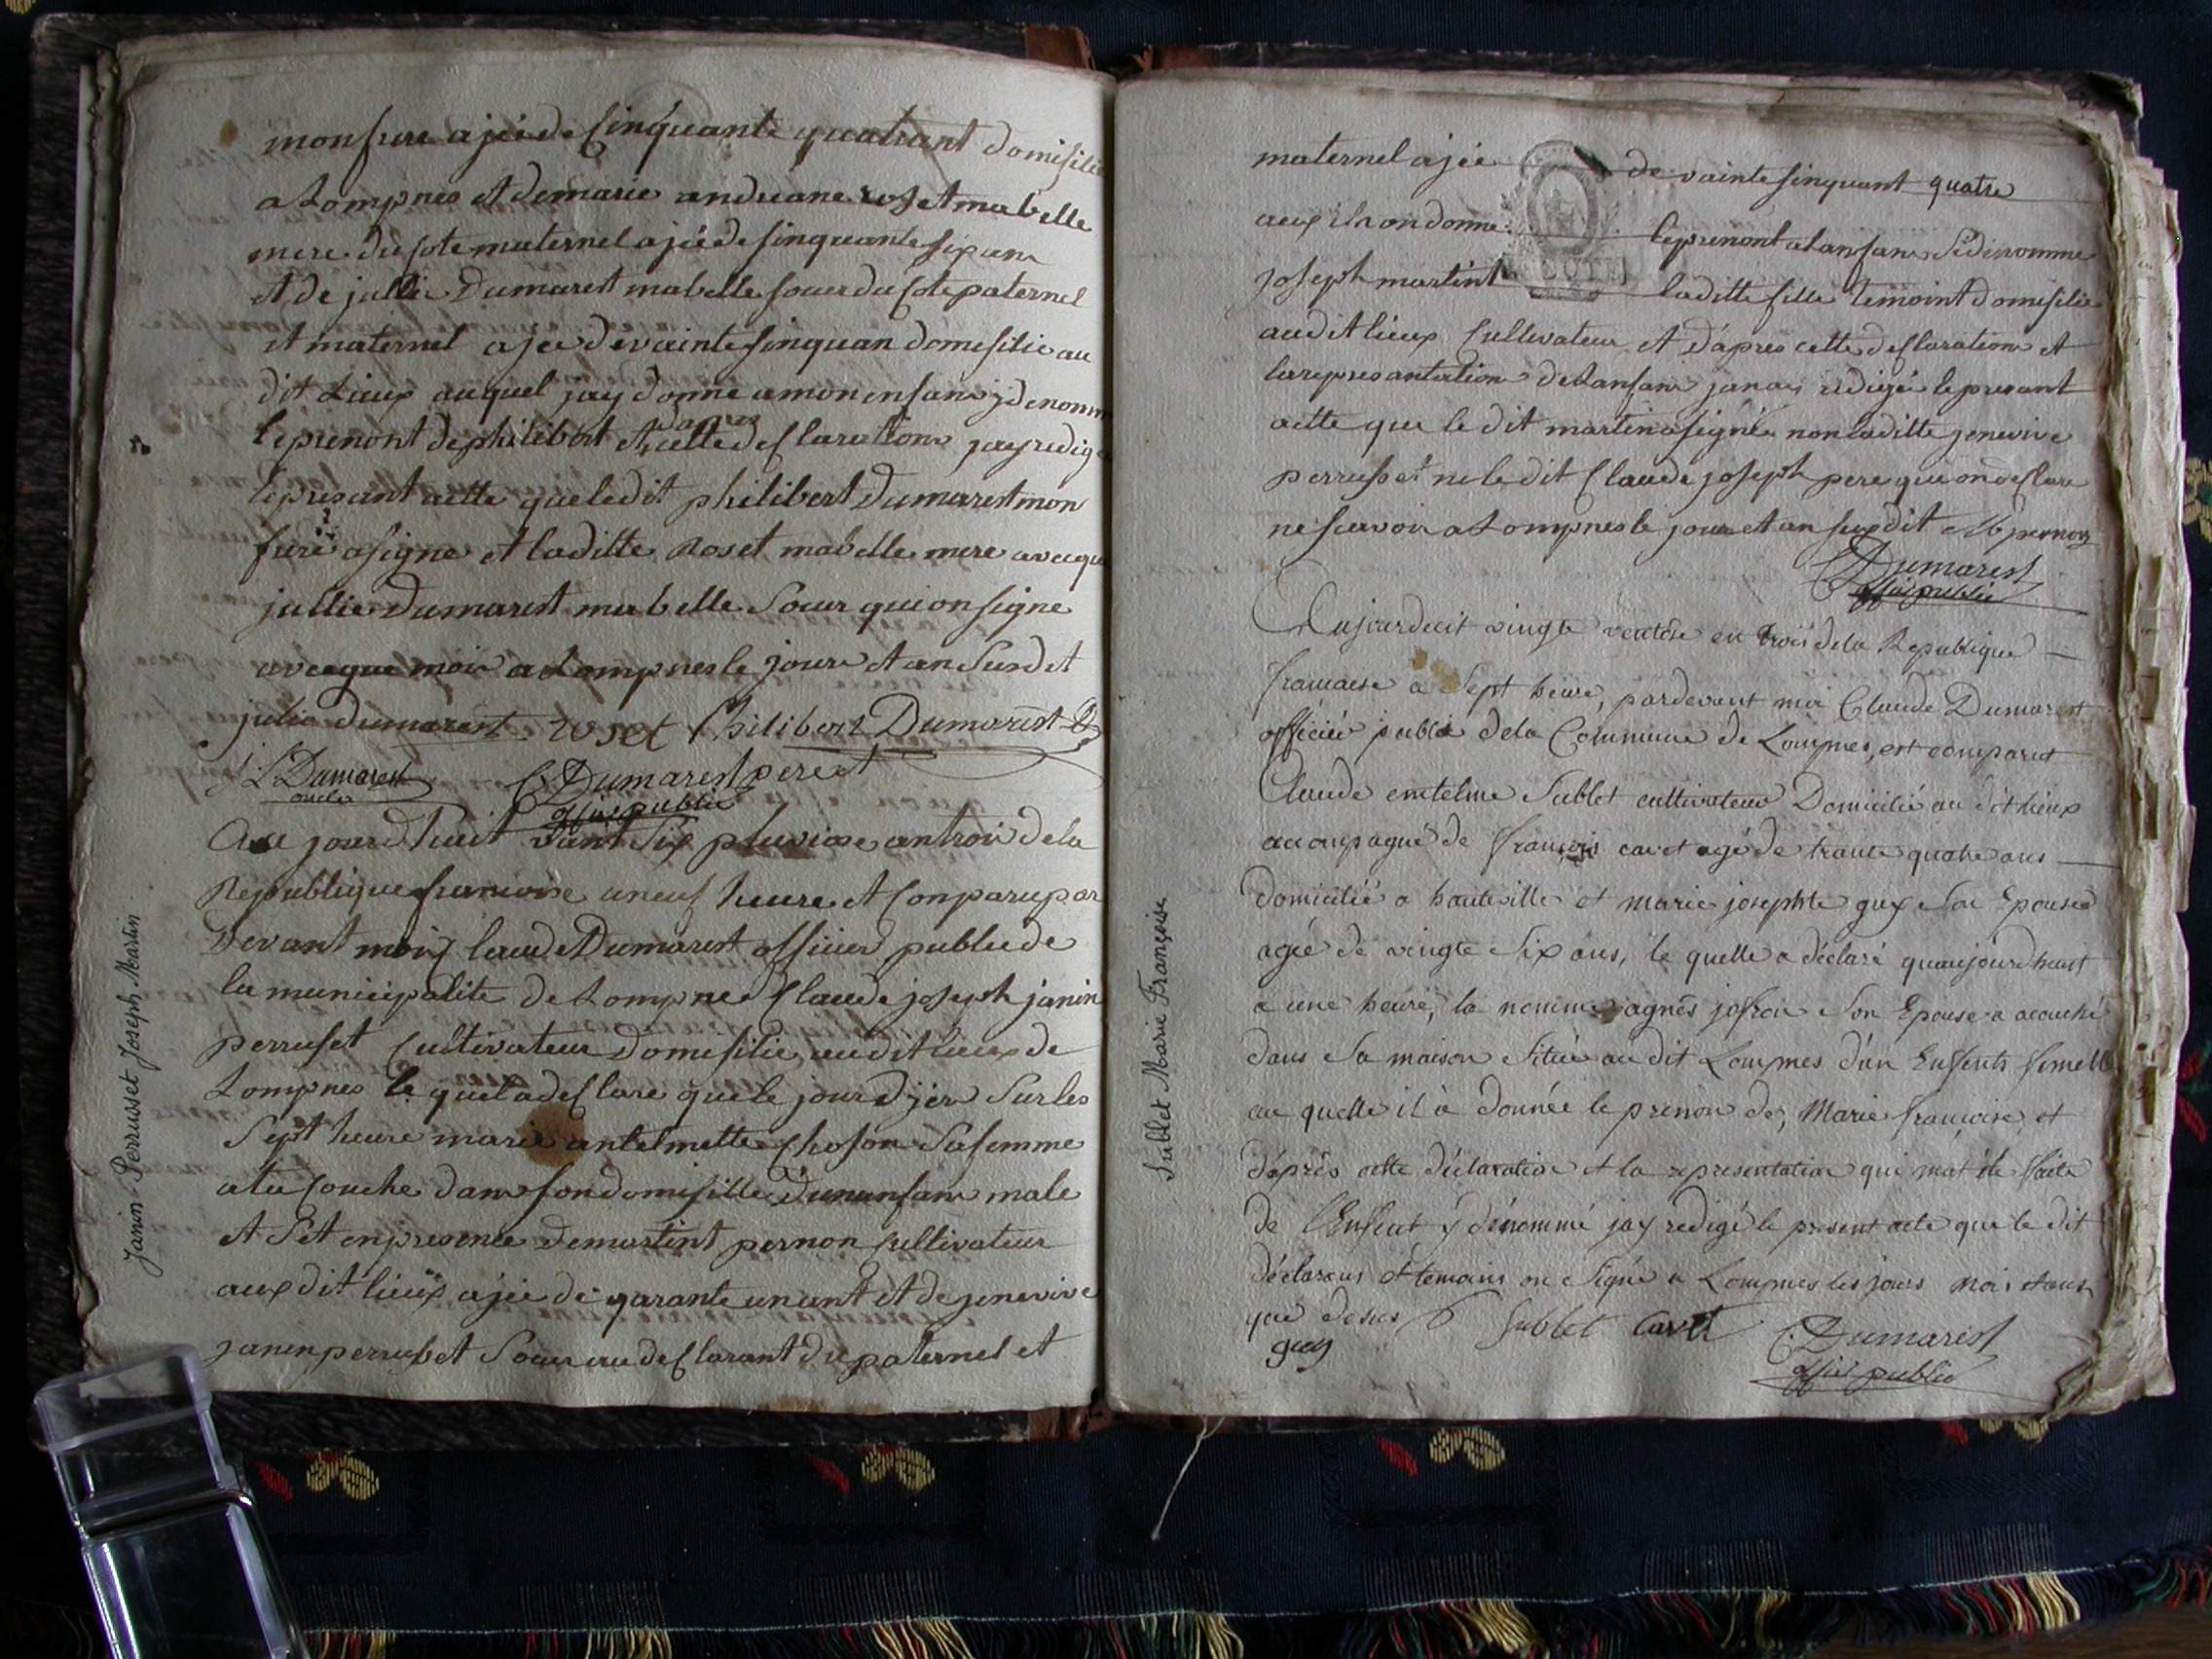 mon frere ajée de sinquante quatrant domisilie
a Lompnes et de marie anduane roset ma belle
mere du cote maternel ajée de sinquante six an
et de jullie Dumarest ma belle soeur du cote paternel
et maternel ajee de vainte sinquan domesilie au
dit Lieux auquel jay donne a mon enfans j denomm
d'apres
le prenont de philibert et cette desclaration jay redig
le presant actte que le dit philibert Dumarest mon
frere a signe et laditte Roset ma belle mere avecque
jullie Dumarest ma belle Soeur qui on signe
avecque moi a Lompnes le jour et an Surdit
julie dumarest roset Philibert Dumarest
Dumarest C Dumarest pere et
oncle offisie public
Aue jourdhuit vint Six pluviose an trois de la
Republique francoise a neuf heure et Conparu par
Devant moi Claude Dumarest officier publie de
la municipalite de Lompne Claude joseph janin
perruset Cultivateur Domesilie audit lieux de
Lompnes le quel a desclare que le jour d'jer Sur les
Sept heure marie antelmette Choson Sa femme
a la Couche dans son domisille D'un enfans male
et Set en presence de martint pernon Cultivateur
aux dit lieux ajée de qarante un ant et de jenevive
janin perruset Soeur au desclarant du paternel et
Janin-Perrusset Joseph Martin
maternel ajée de vainte sinquant quatre
aux il on donne le prenont a lanfans Si denomme
joseph martint laditte fille temoint domesilie
audit lieux Cultivateur et D'apres cette desclaration et
la represantation de Lanfans janai redigée le presant
actte que le dit martin a signée non laditte jenevive
perrusset ne le dit Claude joseph pere qui on desclare
ne scavoir a Lompnes le jour et an susdit M pernon
C Dumarest
offisie public
Aujourduit vingte ventose en trois de la Republique
francaise a Sept heure, pardevant moi Claude Dumarest
officiée public de la Commune de Lompnes, est comparut
Claude entelme Sublet cultivateur Domicilié au dit lieux
accompagné de françois cavet agé de trante quatre ans
domicilié a hauteville et marie josephte guy Son Epouse
agée de vingte Six ans, le quelle a déclaré quaujourdhuit
a une heure, la nomme agnès joffrou Son Epouse a acouché
dans Sa maison Située au dit Lompnes d'un Enfents femell
au quelle il à donnée le prenon de, Marie françoise, et
d'après cette déclaration et la representation qui mat été faite
de l'Enfent y dénommé jay redigé le present acte que le dit
déclarans et temoins on Signé a Lompnes les jours mois et ans
que desus Sublet Cavet C. Dumarest
guy offisie public
Sublet Marie Françoise